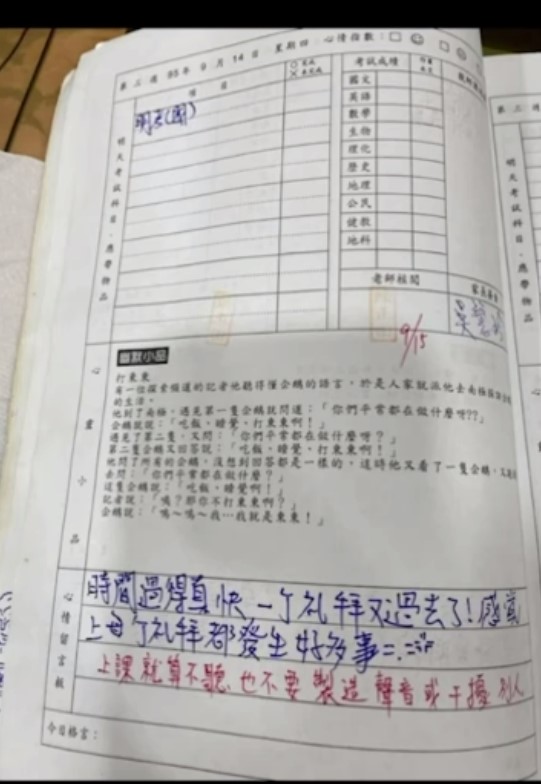 第三週 95年 9月 14日 星期四 心情指數：
項目
○完成
×未完成
考試成績
明天考試科目．應帶物品
國文
英語
數學
生物
理化
歷史
地理
公民
健教
地科
老師核閱
9/15
心靈小品
幽默小品
打東東
有一位探索頻道的記者他聽得懂企鵝的語言，於是人家就派他去南極
的生活。
他到了南極，遇見第一隻企鵝就問道：「你們平常都在做什麼呀??」
企鵝就說：「吃飯、睡覺、打東東啊！」
遇見了第二隻，又問：「你們平常都在做什麼呀？」
第二隻企鵝又回答說：「吃飯、睡覺、打東東啊！」
他問了所有的企鵝，沒想到回答都是一樣的，這時他又看了一隻企鵝，
去問：「你們平常都在做什麼？」
這隻企鵝說：「吃飯、睡覺啊！」
記者說：「嗎？那你不打東東啊？」
企鵝說：「嗚～嗚～我…我就是東東！」
心情留言板
時間過得真快 一個礼拜又過去了！感覺
上每個礼拜都發生好多事=.=
上課就算不聽，也不要製造聲音或干擾別人
今日格言：